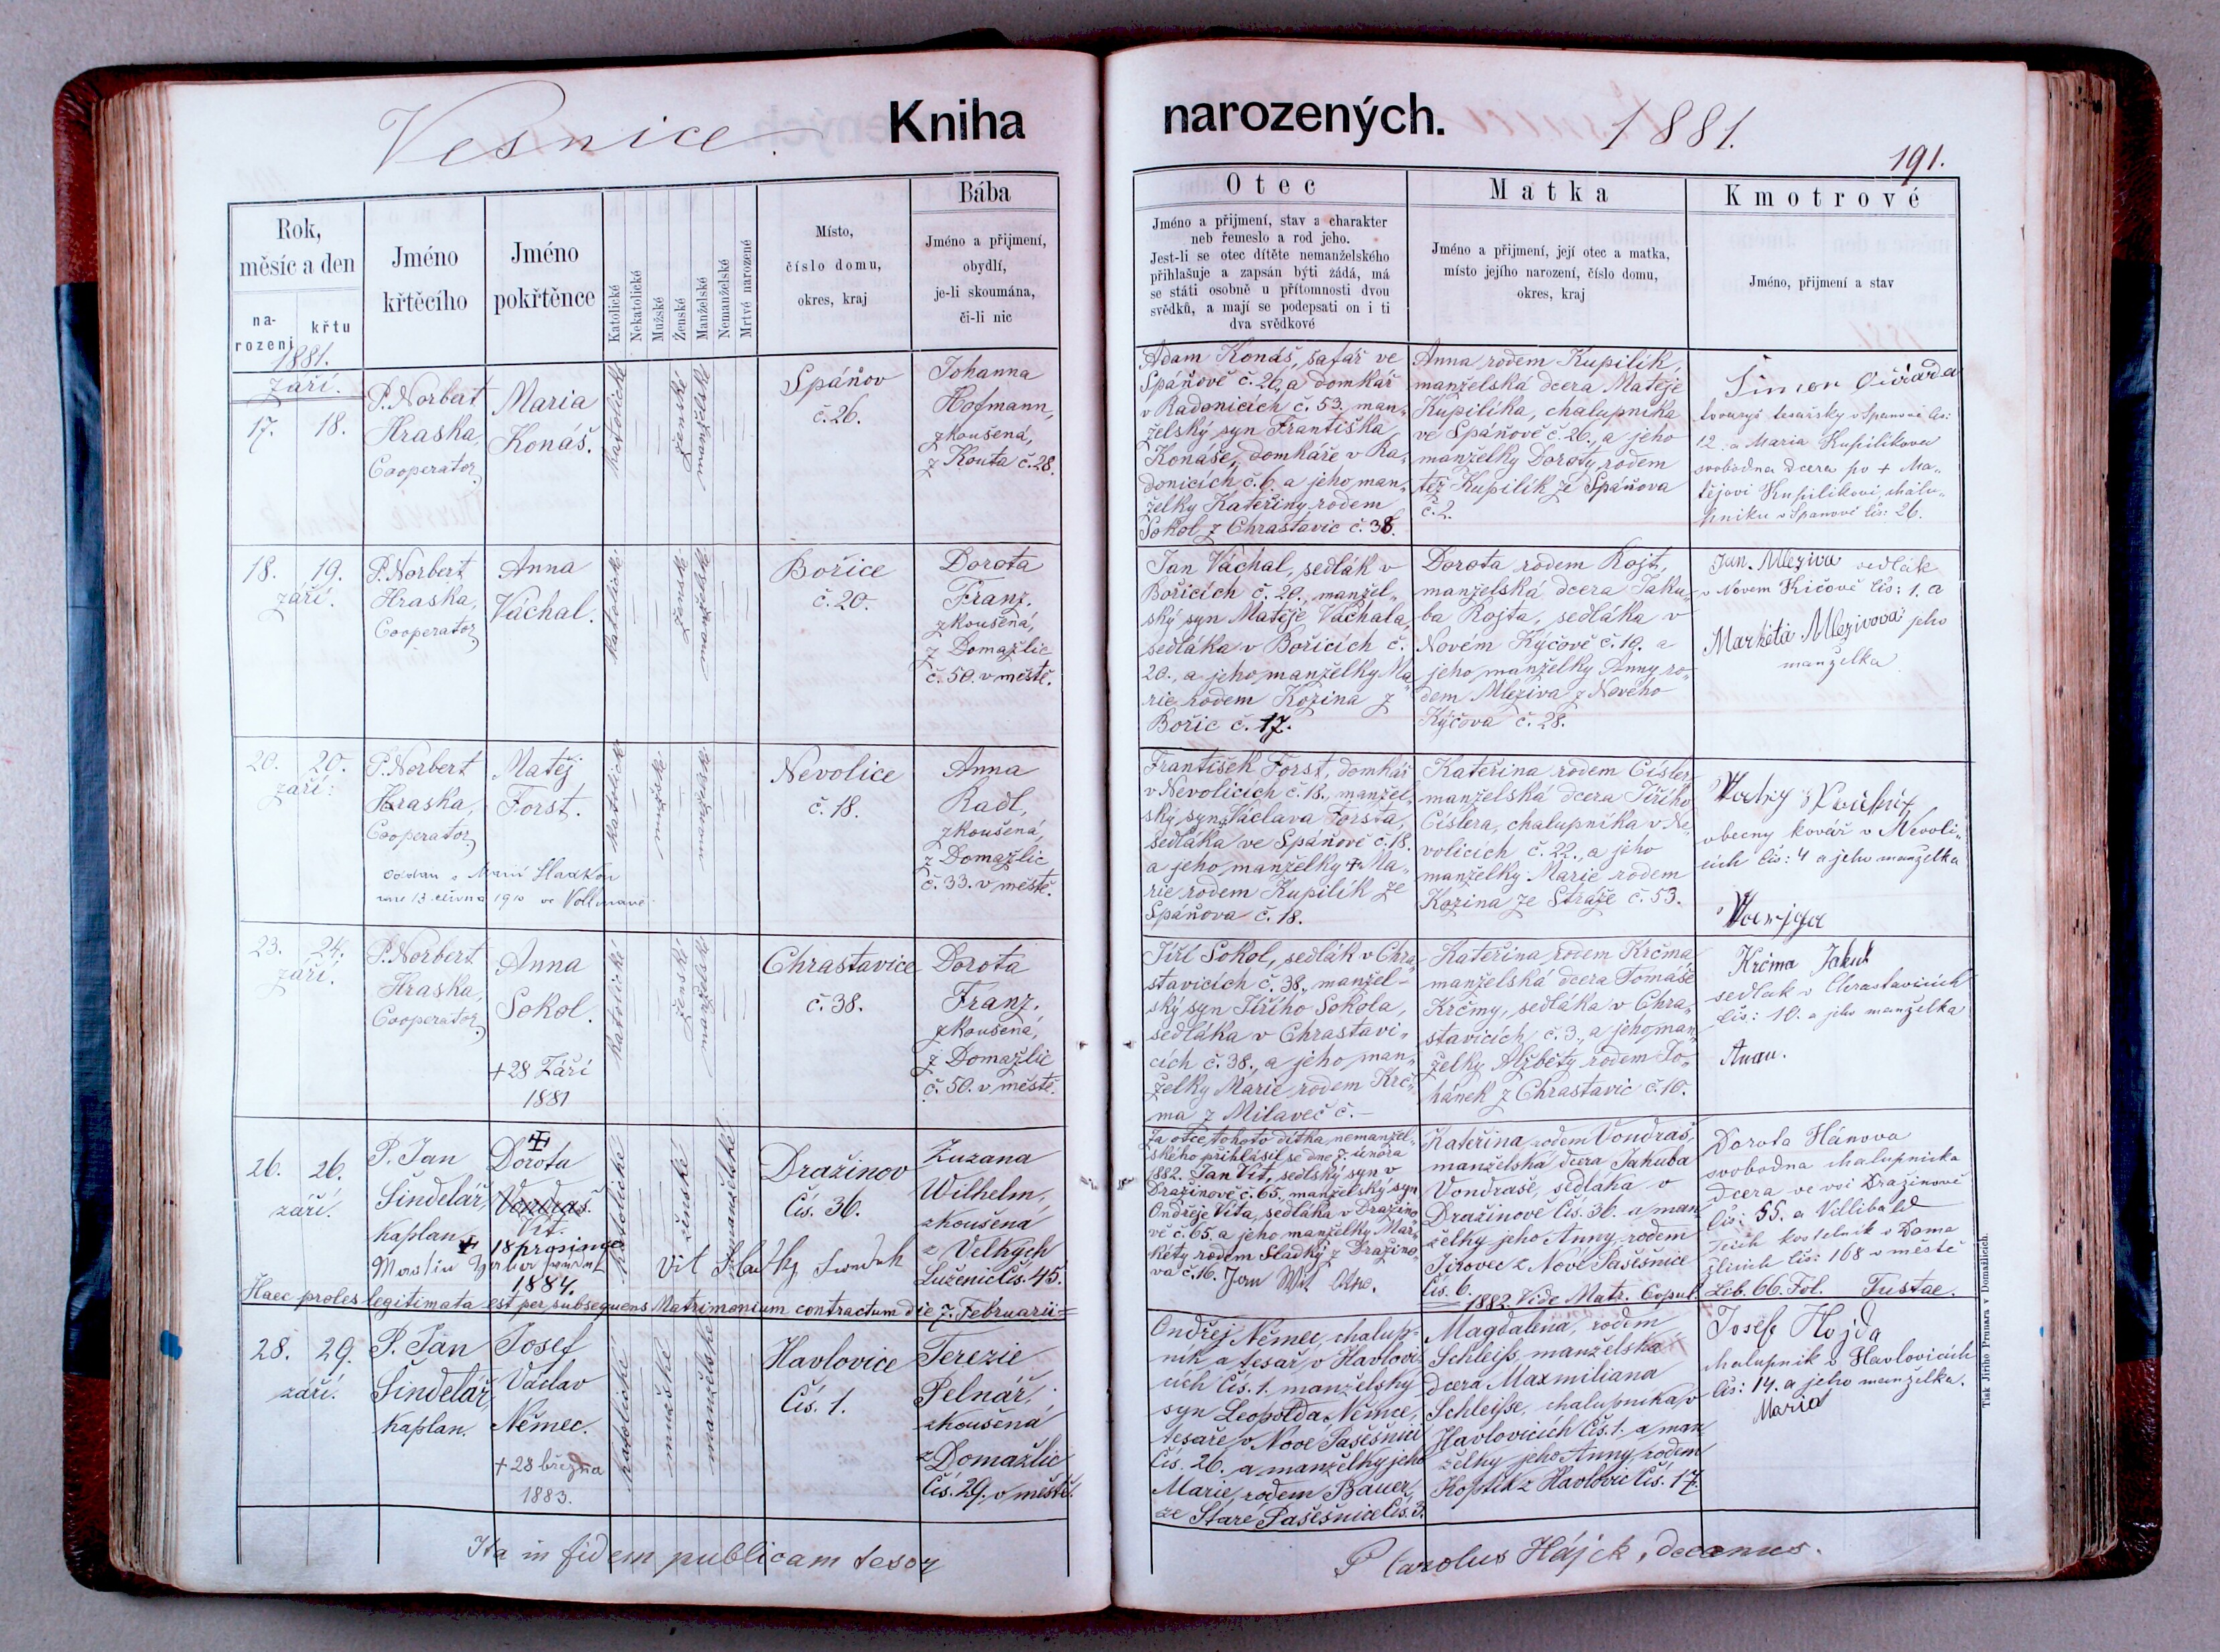 Vesnice
Kniha
narozených.
1881.
191.
Rok,
měsíc a den
na-
rození
křtu
1881.
Jméno
křtěcího
Jméno
pokřtěnce
Katolické
Nekatolické
Mužské
Ženské
Manželské
Nemanželské
Mrtvé narozené
Místo,
číslo domu,
okres, kraj
Bába
Jméno a přijmení,
obydlí,
je-li skoumána,
či-li nic
Otec
Jméno a přijmení, stav a charakter
neb řemeslo a rod jeho.
Jest-li se otec dítěte nemanželského
přihlašuje a zapsán býti žádá, má
se státi osobně u přítomnosti dvou
svědků, a mají se podepsati on i ti
dva svědkové
Matka
Jméno a přijmení, její otec a matka,
místo jejího narození, číslo domu,
okres, kraj
Kmotrové
Jméno, přijmení a stav
září.
17. 18.
P. Norbert
Hraska,
Cooperator
Maria
Konáš.
katolické
ženské
manželské
Spáňov
č. 26.
Johanna
Hofmann,
zkoušená,
z Kouta č. 28.
Adam Konáš, šafář ve
Spáňově č. 26, a domkář
v Radonicích č. 53. man„
želský syn Františka
Konáše, domkáře v Ra„
donicích č. 6. a jeho man„
želky Kateřiny rodem
Sokol z Chrastavic č. 38.
Anna rodem Kupilík,
manželská dcera Matěje
Kupilíka, chalupníka
ve Spáňově č. 26., a jeho
manželky Doroty rodem
též Kupilík ze Spáňova
č. 2.
Šimon
tovaryš tesařsky v Spanově čís:
12. a Maria Kupilikova
svobodna dcera po + Ma„
tějovi Kupilikovi, chalu„
pniku v Spanově čís: 26.
18. 19.
září.
P. Norbert
Hraska,
Cooperator
Anna
Váchal.
katolické
ženské
manželské
Bořice
č. 20.
Dorota
Franz,
zkoušená,
z Domažlic
č. 50. v městě.
Jan Váchal, sedlák v
Bořicích č. 20., manžel„
ský syn Matěje Váchala,
sedláka v Bořicích č.
20., a jeho manželky Ma„
rie rodem Kozina z
Bořic č. 17.
Dorota rodem Rojt,
manželská dcera Jaku„
ba Rojta, sedláka v
Novém Kýčově č. 19. a
jeho manželky Anny ro„
dem Mleziva z Nového
Kýčova č. 28.
Jan Mleziva sedlák
v Novem Kičově čis: 1. a
Markéta Mlezivová jeho
manželka
20. 20.
září.
P. Norbert
Hraska,
Cooperator
Matěj
Forst.
oddán s Marií
dne 13. června 1910 ve Vollmavě
katolické
mužské
manželské
Nevolice
č. 18.
Anna
Radl,
zkoušená,
z Domažlic
č. 33. v městě.
František Forst, domkář
v Nevolicích č. 18., manžel„
ský syn Václava Forsta,
sedláka ve Spáňově č. 18.
a jeho manželky + Ma„
rie rodem Kupilík ze
Spáňova č. 18.
Kateřina rodem Císler
manželská dcera Jiřího
Císlera, chalupníka v Ne„
volicích č. 22., a jeho
manželky Marie rodem
Kozina ze Stráže č. 53.
obecny kovář v Nevoli„
cich čis: 4 a jeho manželka
23. 24.
září.
P. Norbert
Hraska,
Cooperator
Anna
Sokol.
+ 28 Září
1881
katolické
ženské
manželské
Chrastavice
č. 38.
Dorota
Franz,
zkoušená,
z Domažlic
č. 50. v městě.
Jiří Sokol, sedlák v Chra„
stavicích č. 38., manžel-
ský syn Jiřího Sokola,
sedláka v Chrastavi„
cích č. 38., a jeho man„
želky Marie rodem Krč„
ma z Milaveč č. –
Kateřina rodem Krčma
manželská dcera Tomáše
Krčmy, sedláka v Chra„
stavicích, č. 3., a jeho man„
želky Alžběty rodem Jo„
hánek z Chrastavic č. 10.
Krčma Jakub
sedlak v Chrastavicích
čis: 10. a jeho manželka
Anna.
26. 26.
září.
P. Jan
Šindelář,
Kaplan
Dorota
Vondraš.
Vít.
+ 18 prosince
1884.
Martin
katolické
ženské
nemanželské
Vít
Dražinov
Čís. 36.
Zuzana
Wilhelm,
zkoušená
z Velkých
Luženic Čís. 45.
Za otce tohoto dítka nemanžel„
ského přihlásil se dne 7. února
1882. Jan Vít, sedlský syn v
Dražinově č. 65., manželský syn
Ondřeje Víta, sedláka v Dražino„
vě č. 65. a jeho manželky Mar„
kéty rodem Sladký z Dražino„
va č. 16. Jan Wit
Kateřina rodem Vondraš,
manželská dcera Jakuba
Vondraše, sedláka v
Dražinově Čís. 36. a man„
želky jeho Anny, rodem
Jirovec z Nové Pasešnice
Čís. 6.
Dorota Hánova
svobodna chalupnicka
dcera ve vsi Dražinově
čis: 55. a Villibald
kostelnik v Doma„
žlicich čis: 168 v městě
Haec proles legitimata est per subsequens Matrimonium contractum die 7. Februarii
1882. Vide Matr. Copul. Lib. 66. Fol. Tustae.
28. 29.
září.
P. Jan
Šindelář,
Kaplan.
Josef
Václav
Němec.
+ 28 března
1883.
katolické
mužské
manželské
Havlovice
Čís. 1.
Terezie
Pelnář,
zkoušená
z Domažlic
Čís. 29. v městě.
Ondřej Němec, chalup„
ník a tesař v Havlovi„
cích Čís. 1. manželský
syn Leopolda Němce,
tesaře v Nové Pasešnici
Čís. 26. a manželky jeho
Marie, rodem Bauer,
ze Staré Pasešnice Čís. 3.
Magdalena, rodem
Schleiß, manželská
dcera Maxmiliana
Schleiße, chalupníka v
Havlovicích Čís. 1. a man„
želky jeho Anny, rodem
Koptík z Havlovic Čís. 17.
Josef Hojda
chalupnik v Havlovicich
čis: 14. a jeho manželka.
Maria
Ita in fidem publicam testor
P Carolus Hájek, decanus.
Tisk Jiřího Prunara v Domažlicích.